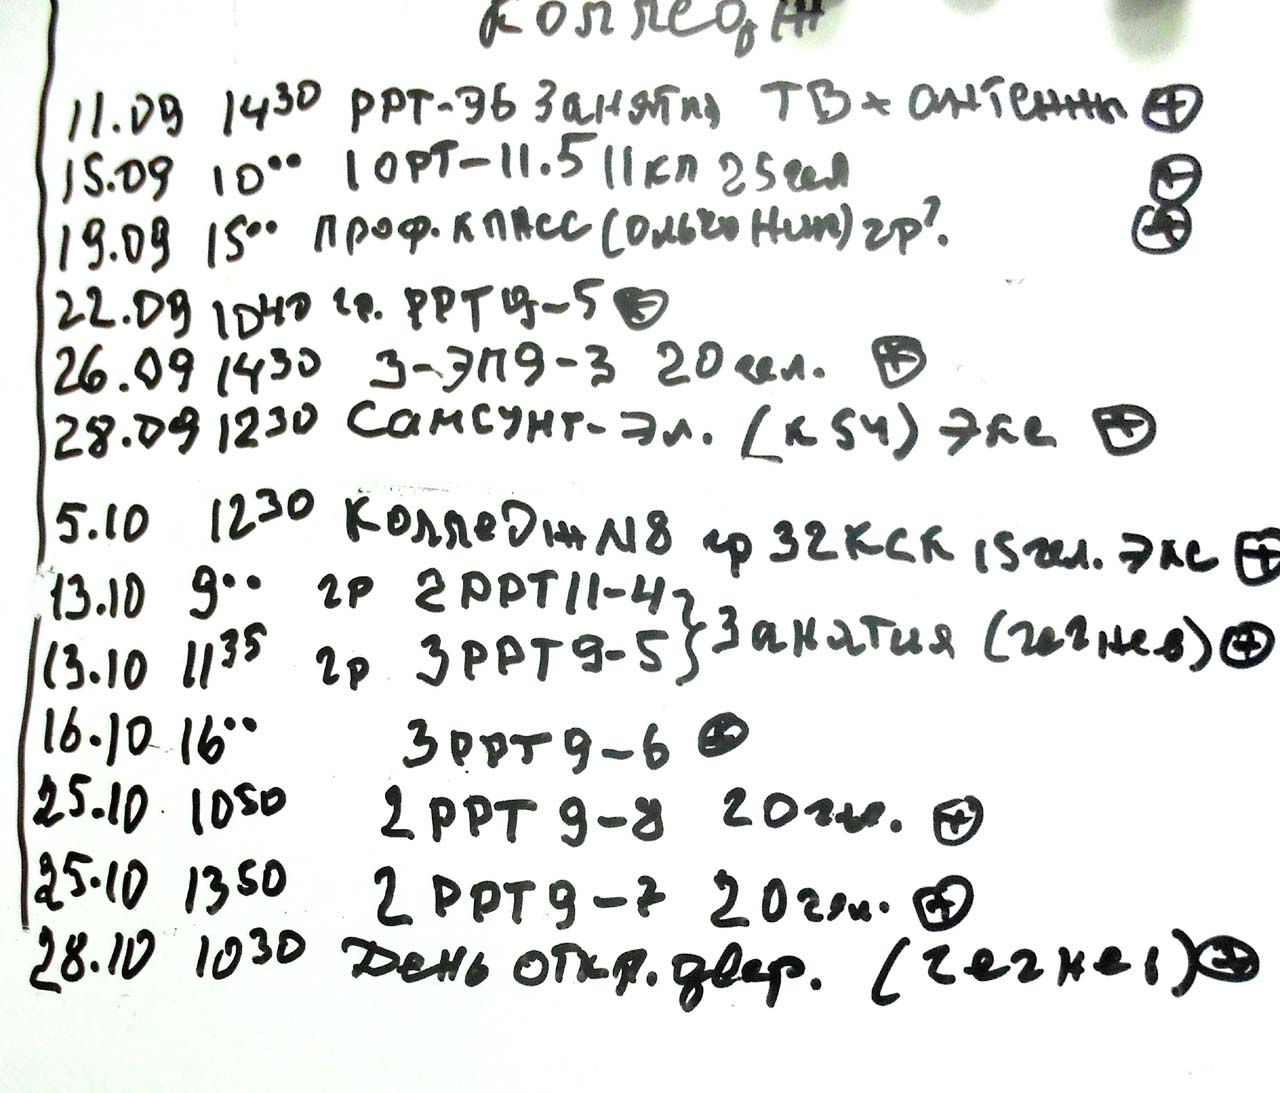 Колледж
11.09 14³⁰ РРТ-96 Занятия ТВ * антенны ⊕
15.09 10⁰⁰ 1 ОРТ-11.5 11 кл 25 чел ⊕
19.09 15⁰⁰ проф. класс (Ольга Ник) гр?. ⊕
22.09 10⁴⁰ гр. РРТ 9-5 ⊕
26.09 14³⁰ 3-ЭП9-3 20 чел. ⊕
28.09 12³⁰ Самсунг-Эл. (к 54) Экс ⊕
5.10 12³⁰ Колледж N8 гр 32КСК 15 чел. Экс ⊕
13.10 9⁰⁰ гр 2РРТ11-4 } Занятия (Чечнев) ⊕
13.10 11³⁵ гр 3РРТ9-5 }
16.10 16⁰⁰ 3РРТ9-6 ⊕
25.10 10⁵⁰ 2РРТ 9-8 20 чел. ⊕
25.10 13⁵⁰ 2РРТ9-7 20 чел. ⊕
28.10 10³⁰ День откр. двер. (Чечнев) ⊕